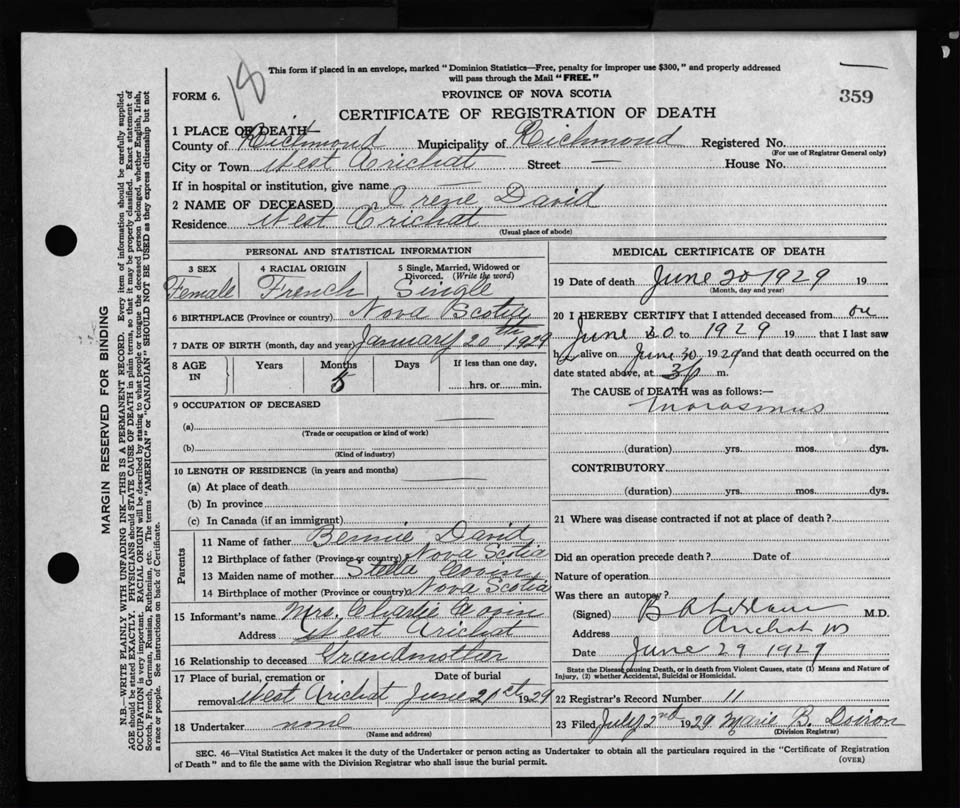 18
This form if placed in an envelope, marked "Dominion Statistics—Free, penalty for improper use $300," and properly addressed
will pass through the Mail "FREE."
FORM 6.
PROVINCE OF NOVA SCOTIA
359
CERTIFICATE OF REGISTRATION OF DEATH
1 PLACE OF DEATH—
County of Richmond Municipality of Richmond Registered No.
(For use of Registrar General only)
City or Town West Arichat Street — House No.
If in hospital or institution, give name —
2 NAME OF DECEASED Irene David
Residence West Arichat
(Usual place of abode)
PERSONAL AND STATISTICAL INFORMATION
3 SEX Female
4 RACIAL ORIGIN French
5 Single, Married, Widowed or Divorced. (Write the word) Single
6 BIRTHPLACE (Province or country) Nova Scotia
7 DATE OF BIRTH (month, day and year) January 20th 1929
8 AGE IN Years Months 5 Days If less than one day, hrs. or min.
9 OCCUPATION OF DECEASED
(a)
(Trade or occupation or kind of work)
(b)
(Kind of industry)
10 LENGTH OF RESIDENCE (in years and months)
(a) At place of death
(b) In province
(c) In Canada (if an immigrant)
Parents
11 Name of father Bennie David
12 Birthplace of father (Province or country) Nova Scotia
13 Maiden name of mother Stella
14 Birthplace of mother (Province or country) Nova Scotia
15 Informant's name Mrs. Charlie
Address West Arichat
16 Relationship to deceased Grandmother
17 Place of burial, cremation or removal West Arichat
Date of burial June 21st 1929
18 Undertaker none
(Name and address)
MEDICAL CERTIFICATE OF DEATH
19 Date of death June 20 1929 19
(Month, day and year)
20 I HEREBY CERTIFY that I attended deceased from on
June 20 to 1929 19 that I last saw
h alive on June 1929 and that death occurred on the
date stated above, at 3 p m.
The CAUSE of DEATH was as follows:—
Marasmus
(duration) yrs. mos. dys.
CONTRIBUTORY
(duration) yrs. mos. dys.
21 Where was disease contracted if not at place of death?
Did an operation precede death? Date of
Nature of operation
Was there an autopsy?
(Signed) M.D.
Address Arichat NS
Date June 29 1929
State the Disease Causing Death, or in death from Violent Causes, state (1) Means and Nature of Injury, (2) whether Accidental, Suicidal or Homicidal.
22 Registrar's Record Number 11
23 Filed July 2nd 1929 Marie B. Doiron
(Division Registrar)
SEC. 46—Vital Statistics Act makes it the duty of the Undertaker or person acting as Undertaker to obtain all the particulars required in the "Certificate of Registration
of Death" and to file the same with the Division Registrar who shall issue the burial permit.
(OVER)
MARGIN RESERVED FOR BINDING
N.B.—WRITE PLAINLY WITH UNFADING INK—THIS IS A PERMANENT RECORD. Every item of information should be carefully supplied.
AGE should be stated EXACTLY. PHYSICIANS should STATE CAUSE OF DEATH in plain terms, so that it may be properly classified. Exact statement of
OCCUPATION is very important. RACIAL ORIGIN will be described by stating to what people or tongue the deceased person belonged, whether English, Irish,
Scotch, French, German, Russian, Ruthenian, etc. The terms "AMERICAN" or "CANADIAN" SHOULD NOT BE USED as they express citizenship but not
a race or people. See instructions on back of Certificate.